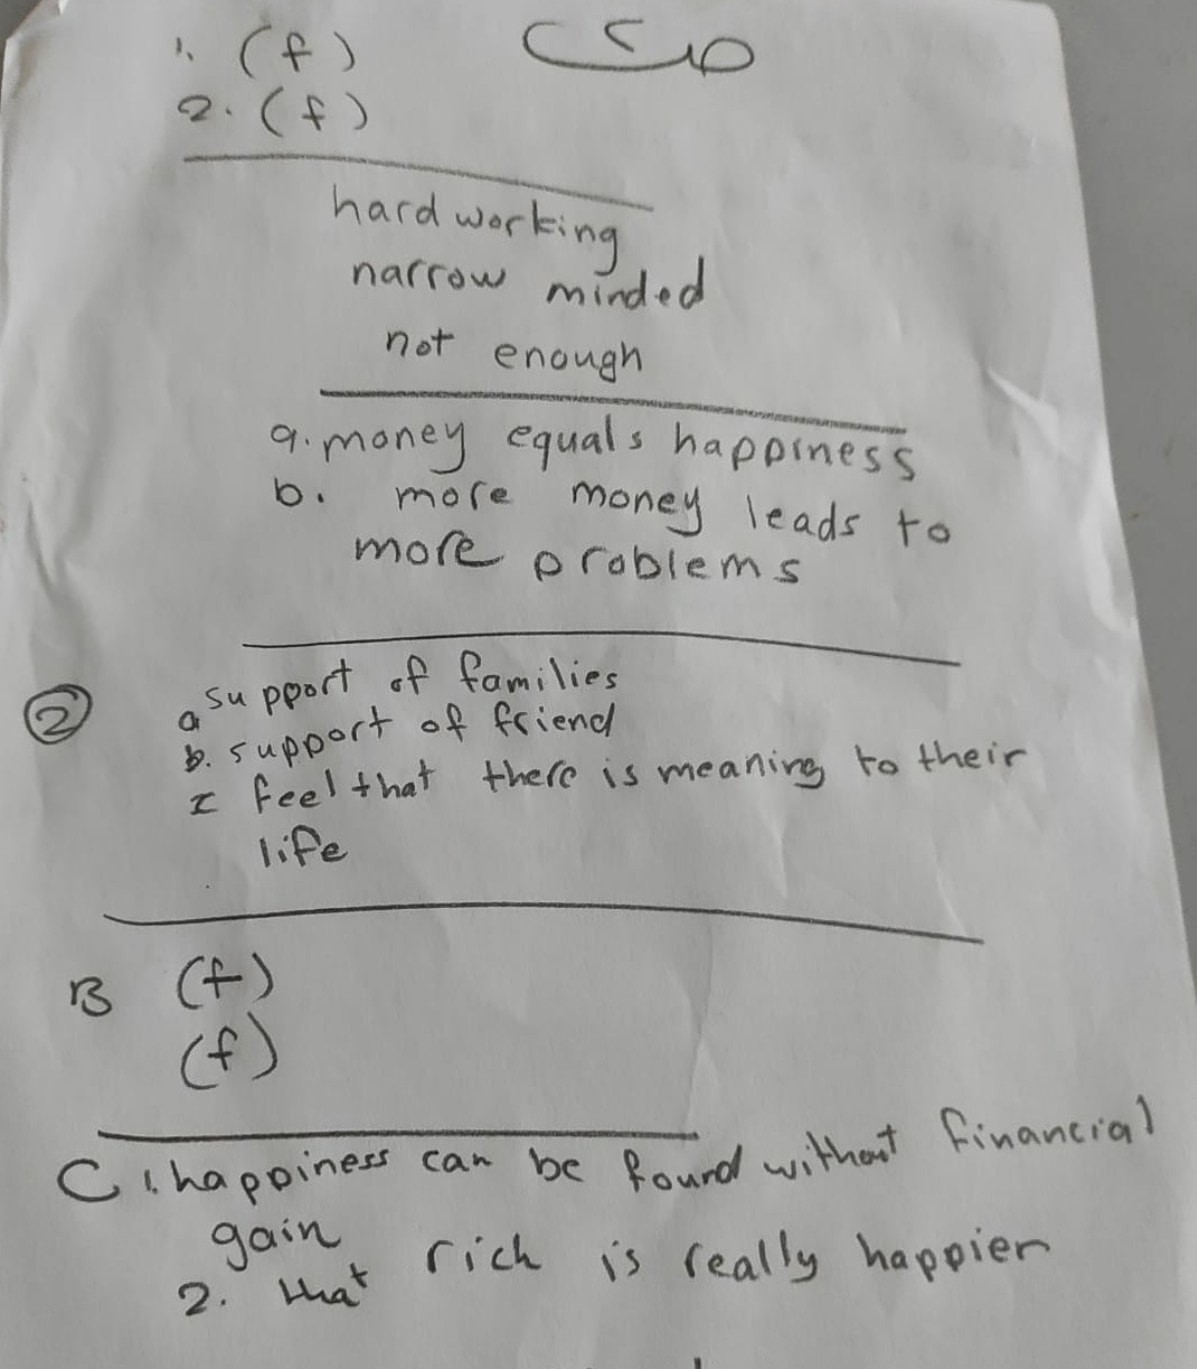 1. (f)
2. (f)
hard working
narrow minded
not enough
a. money equals happiness
b. more money leads to
more problems
2
a support of families
b. support of friend
feel that there is meaning to their
life
B (f)
(f)
C 1. happiness can be found without financial
gain
2. that rich is really happier